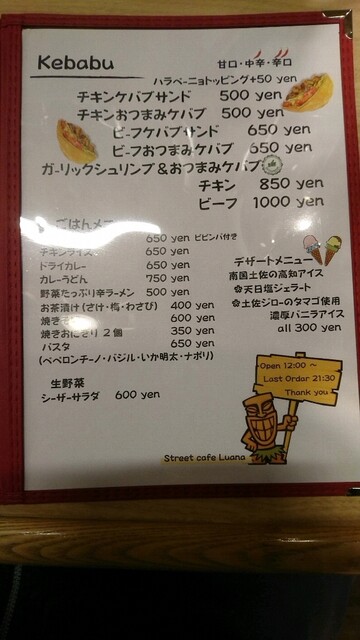 Kebabu
甘口・中辛・辛口
ハラペーニョトッピング+50 yen
チキンケバブサンド 500 yen
チキンおつまみケバブ 500 yen
ビーフケバブサンド 650 yen
ビーフおつまみケバブ 650 yen
ガーリックシュリンプ&おつまみケバブ
チキン 850 yen
ビーフ 1000 yen
ごはんメニ
650 yen ビビンバ付き
チキンライス 650 yen
ドライカレー 650 yen
カレーうどん 750 yen
野菜たっぷり辛ラーメン 500 yen
お茶漬け(さけ・梅・わさび) 400 yen
焼き 600 yen
焼きおにぎり 2個 350 yen
パスタ 650 yen
(ペペロンチーノ・バジル・いか明太・ナポリ)
生野菜
シーザーサラダ 600 yen
デザートメニュー
南国土佐の高知アイス
天日塩ジェラート
土佐ジローのタマゴ使用
濃厚バニラアイス
all 300 yen
Open 12:00 ~
Last Ordar 21:30
Thank you
Street cafe Luana